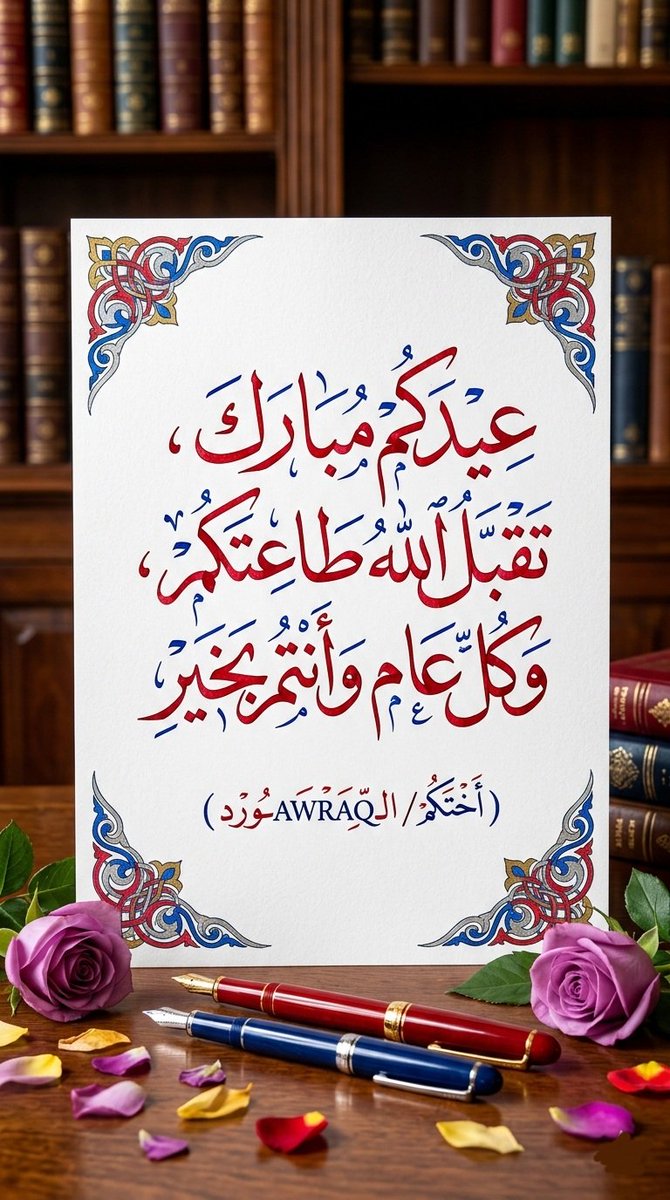 عِيْدَكُمْ مُبَارَكَ،
تَقَبَّلُ ٱللهُ طَاعِتَكُمْ،
وَكُلُّ عَام وَأَنْتُمْ بَخَيَرِ
(أَخْتَكُمْ/ الـAWRAQـوُرْد)